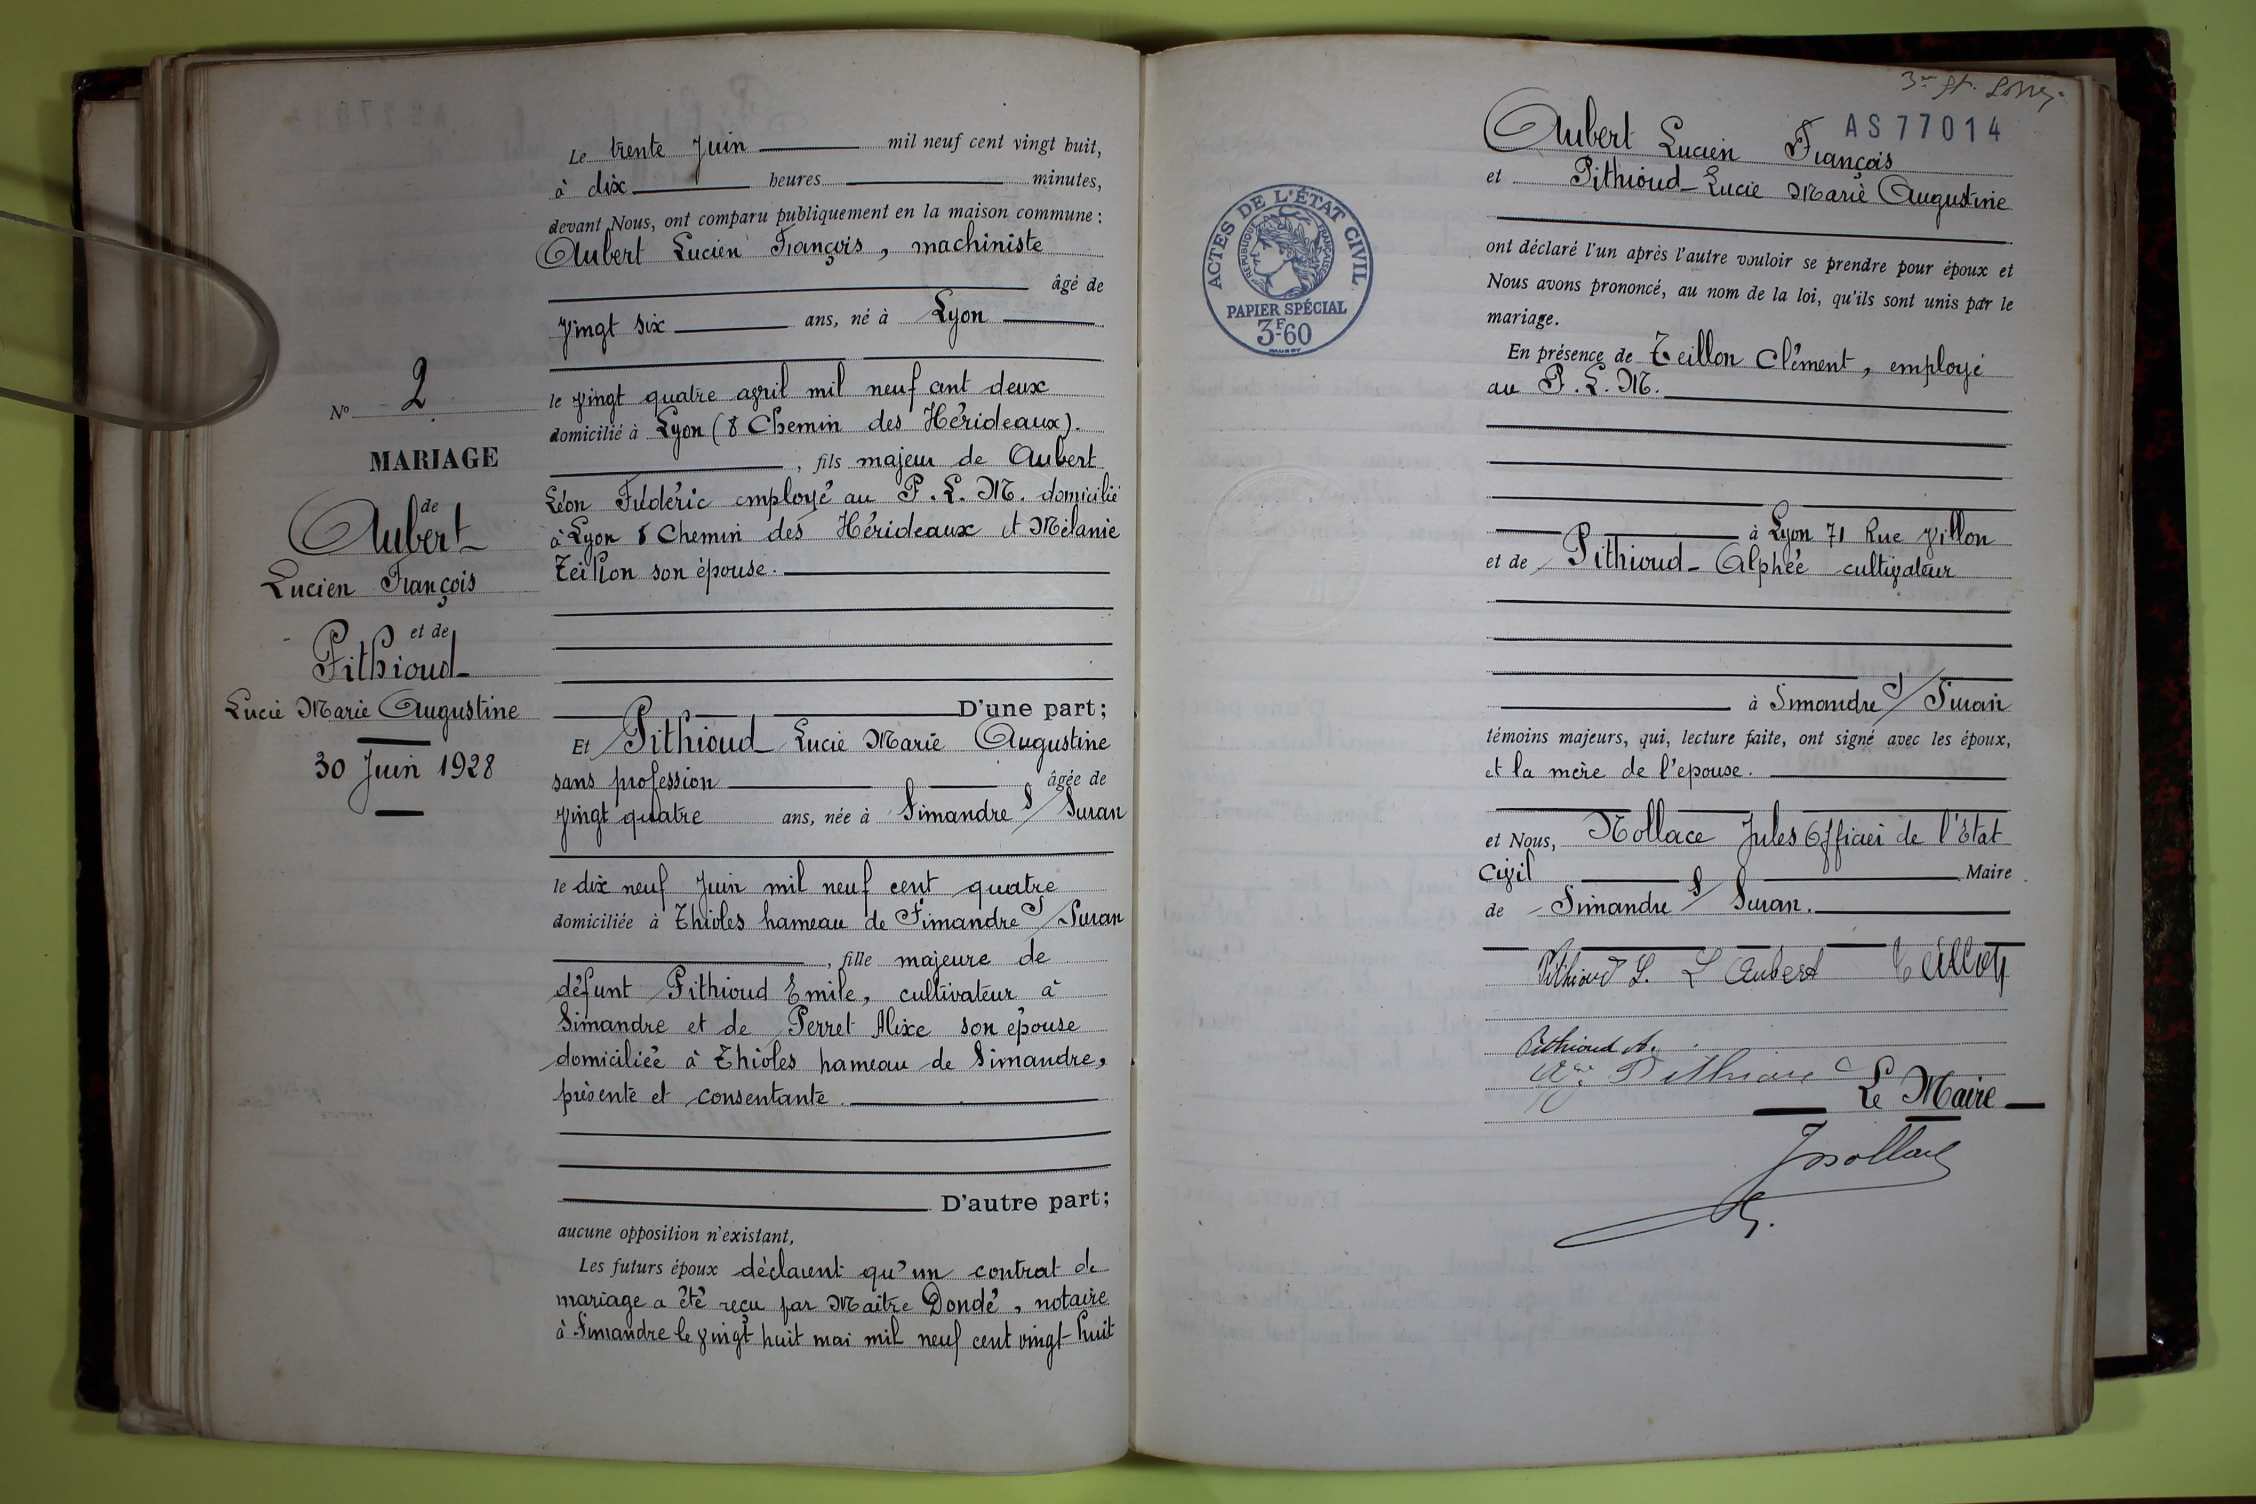 N° 2
MARIAGE
de
Aubert
Lucien François
et de
Pithioud
Lucie Marie Augustine
30 Juin 1928
Le trente Juin mil neuf cent vingt huit,
à dix heures minutes,
devant Nous, ont comparu publiquement en la maison commune :
Aubert Lucien François, machiniste
âgé de
vingt six ans, né à Lyon
le vingt quatre avril mil neuf cent deux
domicilié à Lyon (8 Chemin des Hérideaux).
, fils majeur de Aubert
Léon Frédéric employé au P.L.M. domicilié
à Lyon 8 Chemin des Hérideaux et Mélanie
Teillon son épouse.
D'une part;
Et Pithioud Lucie Marie Augustine
sans profession âgée de
vingt quatre ans, née à Simandre s/ Suran
le dix neuf Juin mil neuf cent quatre
domiciliée à Thioles hameau de Simandre s/ Suran
, fille majeure de
défunt Pithioud Emile, cultivateur à
Simandre et de Perret Alixe son épouse
domiciliée à Thioles hameau de Simandre,
présente et consentante.
D'autre part;
aucune opposition n'existant,
Les futurs époux déclarent qu'un contrat de
mariage a été reçu par Maître Dondé, notaire
à Simandre le vingt huit mai mil neuf cent vingt huit
AS77014
Aubert Lucien François
et Pithioud Lucie Marie Augustine
ACTES DE L'ÉTAT CIVIL
RÉPUBLIQUE FRANÇAISE
PAPIER SPÉCIAL
3F60
ont déclaré l'un après l'autre vouloir se prendre pour époux et
Nous avons prononcé, au nom de la loi, qu'ils sont unis par le
mariage.
En présence de Teillon Clément, employé
au P.L.M.
à Lyon 71 Rue Villon
et de Pithioud Alphée cultivateur
à Simandre s/ Suran
témoins majeurs, qui, lecture faite, ont signé avec les époux,
et la mère de l'epouse.
et Nous, Mollace Jules Officier de l'Etat
Civil Maire
de Simandre s/ Suran.
Pithioud L. L Aubert Teillon
Pithioud A.
Pithioud
Le Maire